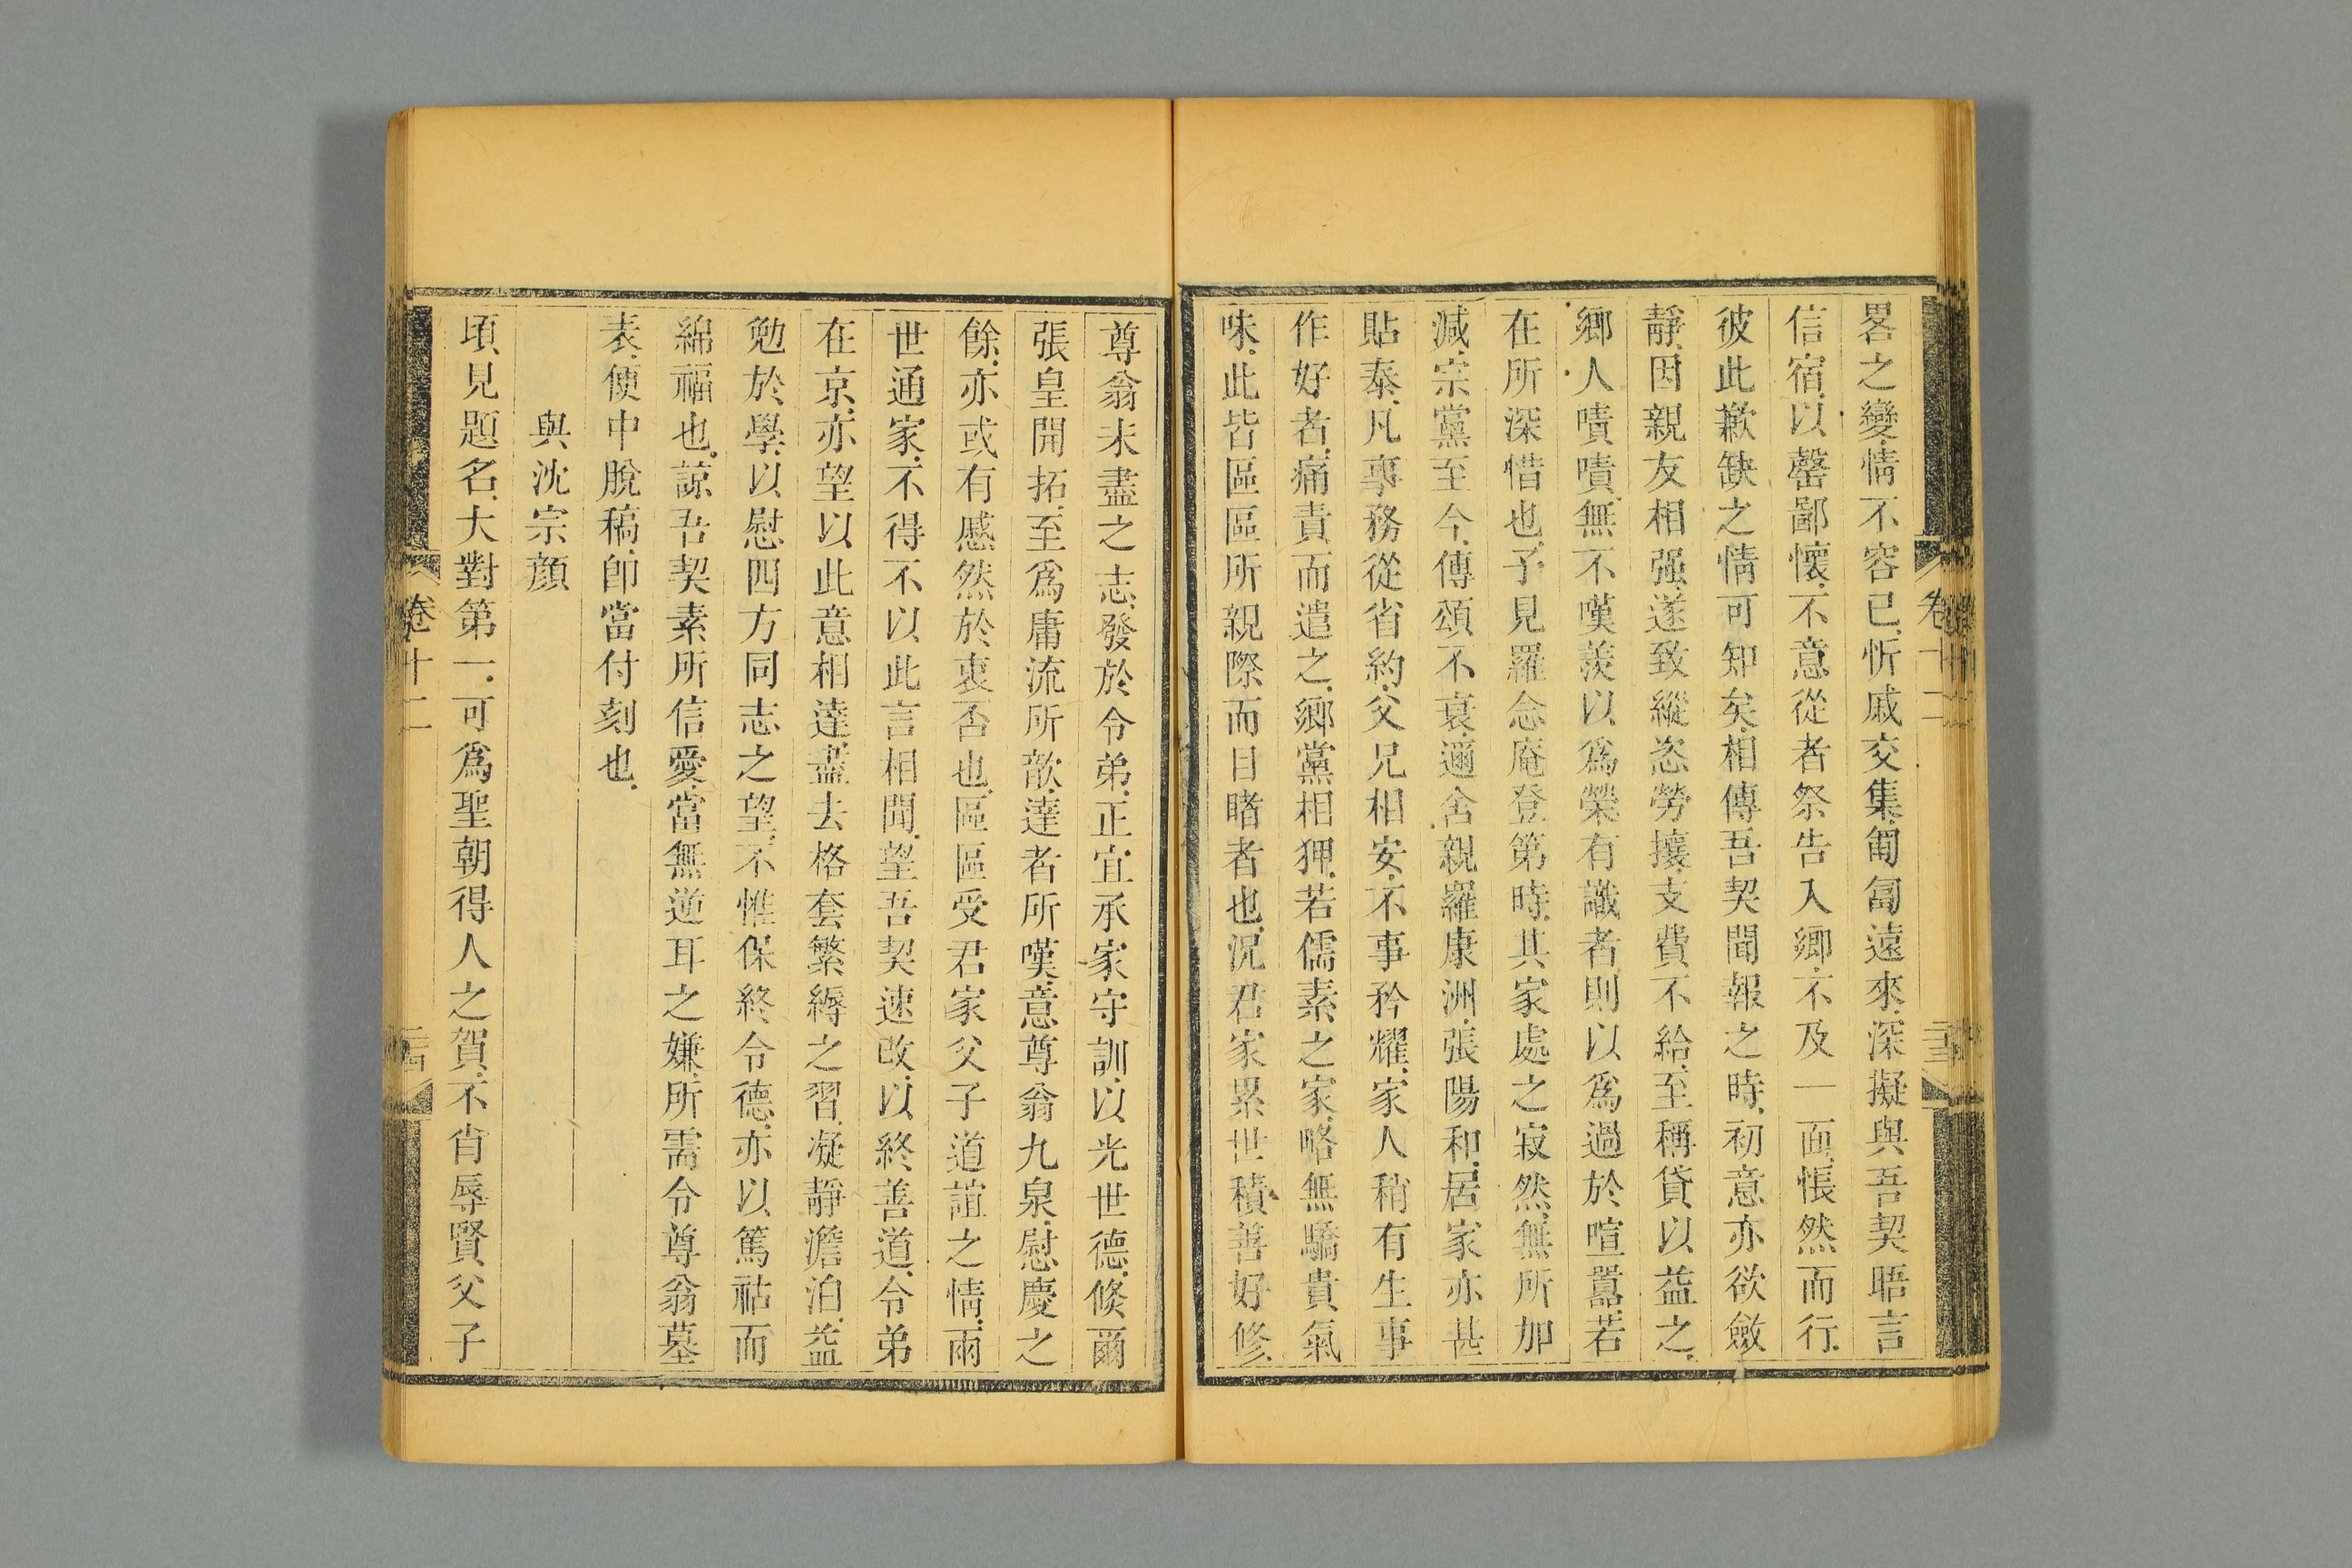 畧之變情不容已忻戚交集匍匐遠來深擬與吾契晤言
信宿以罄鄙懷不意從者祭告入鄉不及一面悵然而行
彼此歉缺之情可知矣相傳吾契聞報之時初意亦欲斂
靜因親友相强遂致縱恣勞攘支費不給至稱貸以益之
鄉人嘖嘖無不嘆羨以爲榮有識者則以爲過於喧囂若
在所深惜也予見羅念庵登第時其家處之寂然無所加
減宗黨至今傳頌不衰邇舍親羅康洲張陽和居家亦甚
貼泰凡事務從省約父兄相安不事矜耀家人稍有生事
作好者痛責而遣之鄉黨相狎若儒素之家略無驕貴氣
味此皆區區所親際而目睹者也況君家累世積善好修
尊翁未盡之志發於令弟正宜承家守訓以光世德倐爾
張皇開拓至爲庸流所歆達者所嘆意尊翁九泉慰慶之
餘亦或有慼然於衷否也區區受君家父子道誼之情兩
世通家不得不以此言相聞望吾契速改以終善道令弟
在京亦望以此意相達盡去格套繁縟之習凝靜澹泊益
勉於學以慰四方同志之望不惟保終令德亦以篤祜而
綿福也諒吾契素所信愛當無逆耳之嫌所需令尊翁墓
表便中脫稿卽當付刻也
與沈宗顔
頃見題名大對第一可爲聖朝得人之賀不肖辱賢父子
卷十二
二十三
卷十二
二十四